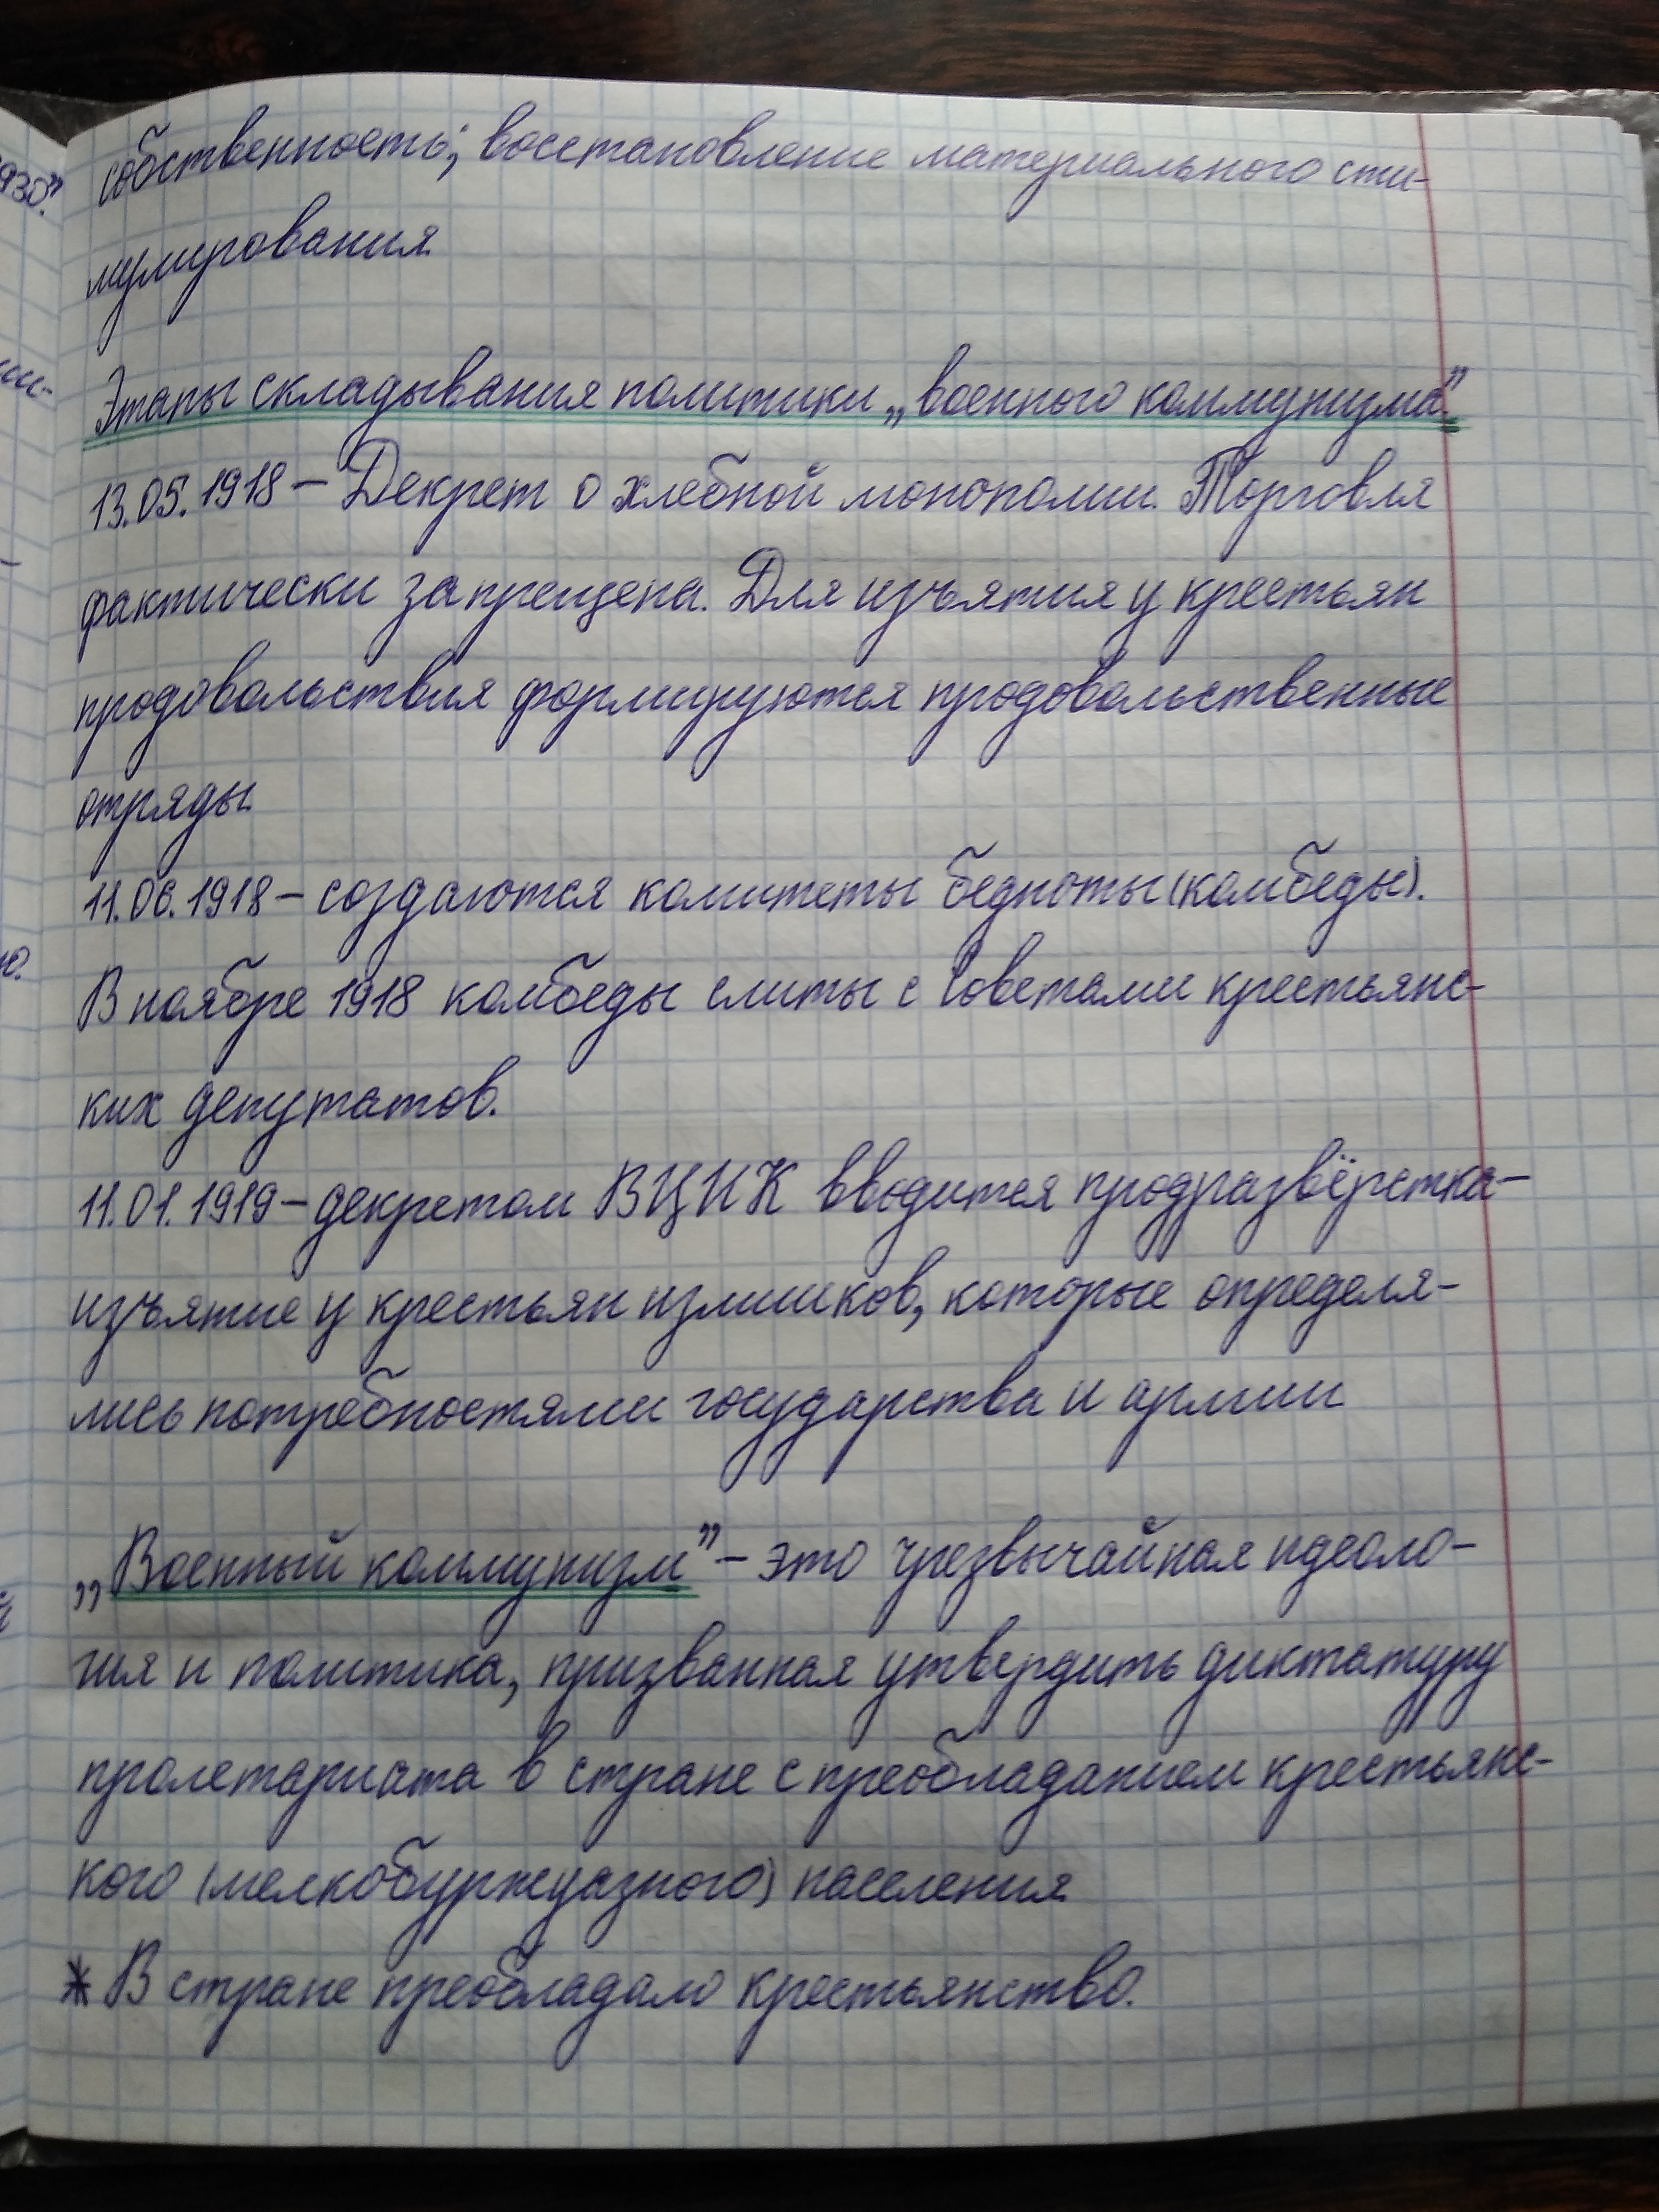 собственность; восстановление материального сти-
мулирования
Этапы складывания политики „военного коммунизма".
13.05.1918 – Декрет о хлебной монополии. Торговля
фактически запрещена. Для изъятия у крестьян
продовольствия формируются продовольственные
отряды.
11.06.1918 – создаются комитеты бедноты (комбеды).
В ноябре 1918 комбеды слиты с Советами крестьянс-
ких депутатов.
11.01.1919 – декретом ВЦИК вводится продразвёрстка –
изъятие у крестьян излишков, которые определя-
лись потребностями государства и армии
„Военный коммунизм" – это чрезвычайная идеоло-
гия и политика, призванная утвердить диктатуру
пролетариата в стране с преобладанием крестьянс-
кого (мелкобуржуазного) населения
* В стране преобладало крестьянство.